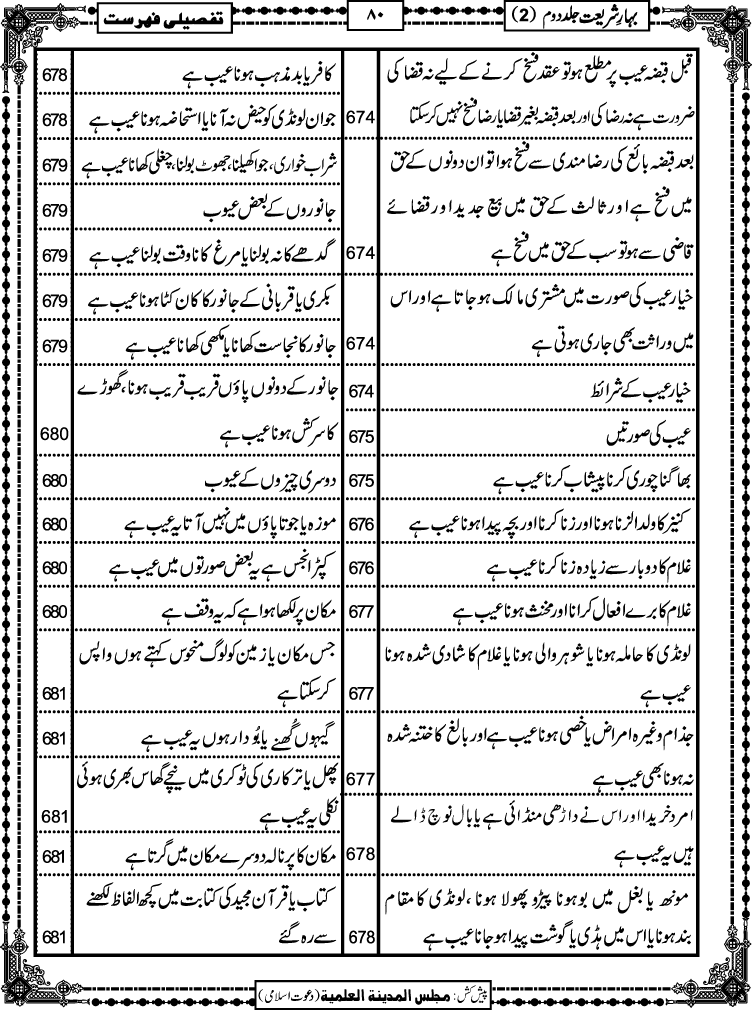 بہارِشریعت جلد دوم (2)
۸۰
تفصیلی فہرست
قبل قبضہ عیب پر مطلع ہو تو عقد فسخ کرنے کے لیے نہ قضا کی
ضرورت ہے نہ رضا کی اور بعد قبضہ بغیر قضا یا رضا فسخ نہیں کرسکتا 674
بعد قبضہ بائع کی رضامندی سے فسخ ہوا تو ان دونوں کے حق
میں فسخ ہے اور ثالث کے حق میں بیع جدید اور قضائے
قاضی سے ہو تو سب کے حق میں فسخ ہے 674
خیار عیب کی صورت میں مشتری مالک ہو جاتا ہے اور اس
میں وراثت بھی جاری ہوتی ہے 674
خیار عیب کے شرائط 674
عیب کی صورتیں 675
بھاگنا چوری کرنا پیشاب کرنا عیب ہے 675
کنیز کا ولد الزنا ہونا اور زنا کرنا اور بچہ پیدا ہونا عیب ہے 676
غلام کا دوبار سے زیادہ زنا کرنا عیب ہے 676
غلام کا برے افعال کرانا اور مخنث ہونا عیب ہے 677
لونڈی کا حاملہ ہونا یا شوہر والی ہونا یا غلام کا شادی شدہ ہونا
عیب ہے 677
جذام وغیرہ امراض یا خصی ہونا عیب ہے اور بالغ کا ختنہ شدہ
نہ ہونا بھی عیب ہے 677
امرد خریدا اور اس نے داڑھی منڈائی ہے یا بال نوچ ڈالے
ہیں یہ عیب ہے 678
مونھ یا بغل میں بو ہونا پیڑو پھولا ہونا ،لونڈی کا مقام
بند ہونا یا اس میں ہڈی یا گوشت پیدا ہو جانا عیب ہے 678
کافر یا بدمذہب ہونا عیب ہے 678
جوان لونڈی کو حیض نہ آنا یا استحاضہ ہونا عیب ہے 678
شراب خواری، جوا کھیلنا، جھوٹ بولنا، چغلی کھانا عیب ہے 679
جانوروں کے بعض عیوب 679
گدھے کا نہ بولنا یا مرغ کا ناوقت بولنا عیب ہے 679
بکری یا قربانی کے جانور کا کان کٹا ہونا عیب ہے 679
جانور کا نجاست کھانا یا مکھی کھانا عیب ہے 679
جانور کے دونوں پاؤں قریب قریب ہونا ،گھوڑے
کا سرکش ہونا عیب ہے 680
دوسری چیزوں کے عیوب 680
موزہ یا جوتا پاؤں میں نہیں آتا یہ عیب ہے 680
کپڑا نجس ہے یہ بعض صورتوں میں عیب ہے 680
مکان پر لکھا ہوا ہے کہ یہ وقف ہے 680
جس مکان یا زمین کو لوگ منحوس کہتے ہوں واپس
کرسکتا ہے 681
گیہوں گُھنے یا بُو دار ہوں یہ عیب ہے 681
پھل یا ترکاری کی ٹوکری میں نیچے گھاس بھری ہوئی
نکلی یہ عیب ہے 681
مکان کا پرنالہ دوسرے مکان میں گرتا ہے 681
کتاب یا قرآن مجید کی کتابت میں کچھ الفاظ لکھنے
سے رہ گئے 681
پیش کش: مجلس المدینۃ العلمیۃ (دعوت اسلامی)